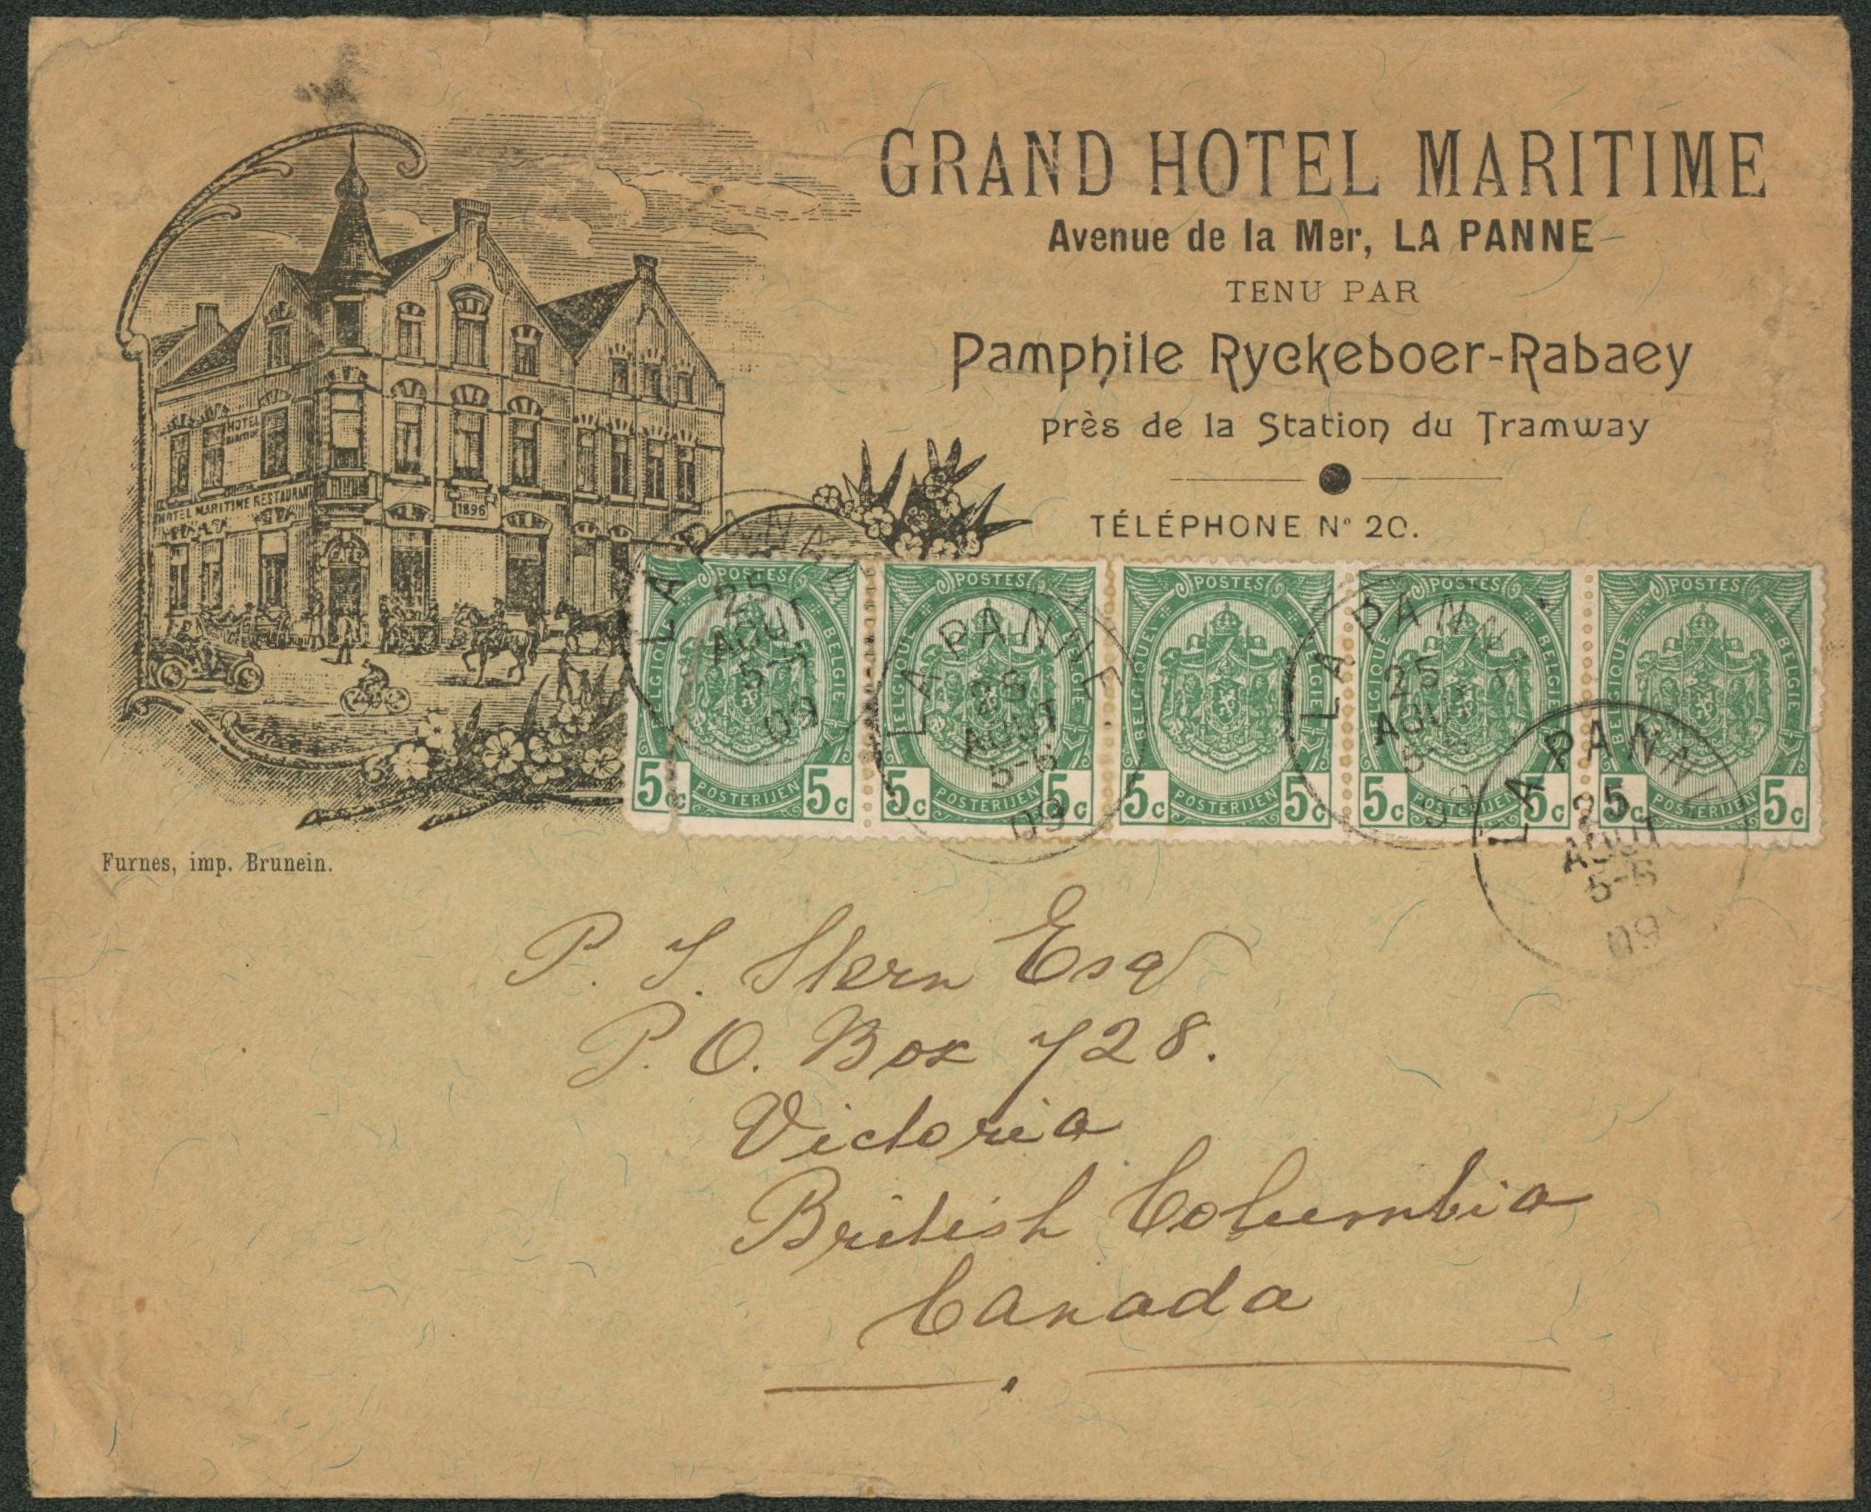 GRAND HOTEL MARITIME
Avenue de la Mer, LA PANNE
TENU PAR
Pamphile Ryckeboer-Rabaey
près de la Station du Tramway
TÉLÉPHONE N° 20.
HOTEL
HOTEL MARITIME RESTAURANT
1896
POSTES
BELGIQUE BELGIE
5c POSTERIJEN 5c
POSTES
BELGIQUE BELGIE
5c POSTERIJEN 5c
POSTES
BELGIQUE BELGIE
5c POSTERIJEN 5c
POSTES
BELGIQUE BELGIE
5c POSTERIJEN 5c
POSTES
BELGIQUE BELGIE
5c POSTERIJEN 5c
LA PANNE
25
AOUT
5-6
09
LA PANNE
25
AOUT
5-6
09
LA PANNE
25
AOUT
5-6
09
LA PANNE
25
AOUT
5-6
09
Furnes, imp. Brunein.
P. J. Stern Esq
P. O. Box 728.
Victoria
British Columbia
Canada